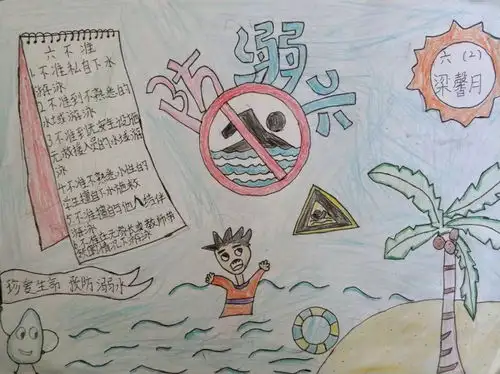 防溺水
六(2)
梁馨月
六不准
1.不准私自下水
游泳
2.不准到不熟悉的
水域游泳
3.不准到无安全设施
无救援人员的水域游
泳
4.不准不熟悉水性的
学生擅自下水施救
5.不准擅自与他人结伴
游泳
6.不准在无家长或教师带
领的情况下游泳
珍爱生命 预防溺水